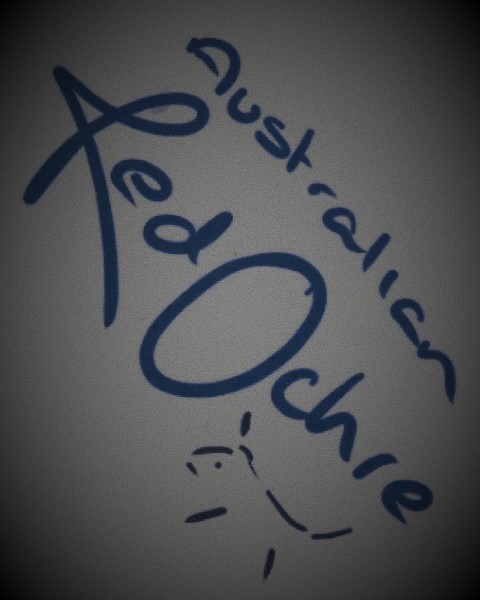 Australian
Red
Ochre